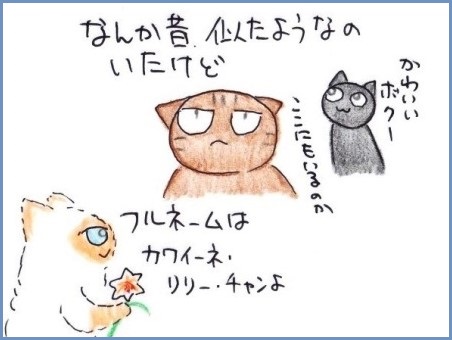 なんか昔、似たようなの
いたけど
かわいい
ボクー
ここにもいるのか
フルネームは
カワイーネ・
リリー・チャンよ